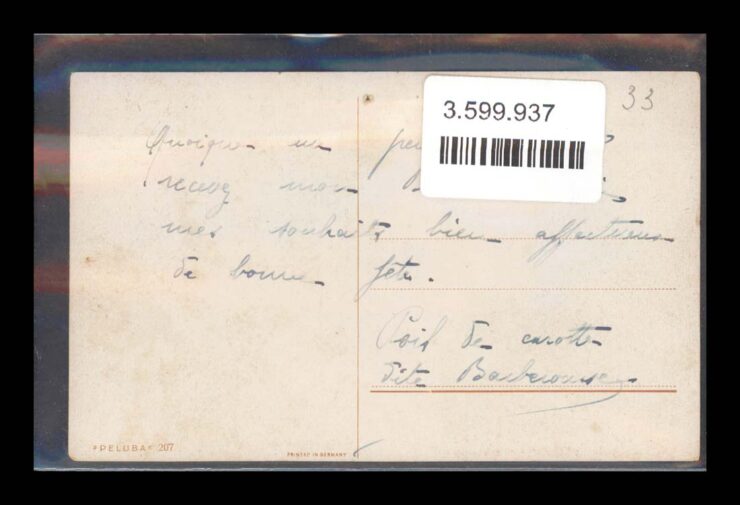 33
3.599.937
Quoique un peu
recevez mon
mes souhaits bien affectueux
de bonne fête.
Poil de carotte
dite Barberousse
"PELUBA" 207
PRINTED IN GERMANY